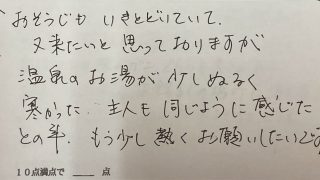 おそうじも いきとどいていて、
又来たいと思っておりますが
温泉のお湯が少しぬるく
寒かった。主人も同じように感じた
との事。もう少し熱くお願いしたいです
10点満点で ＿＿ 点